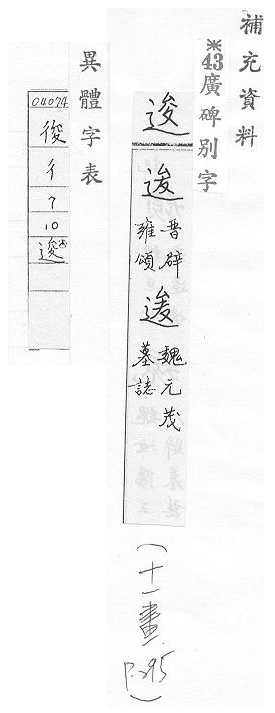 補充資料
※43廣碑別字
逡
逡 晉辟雍頌
逡 魏元茂墓誌
(十一畫 P.295)
異體字表
04074
後
彳
7
10
逡